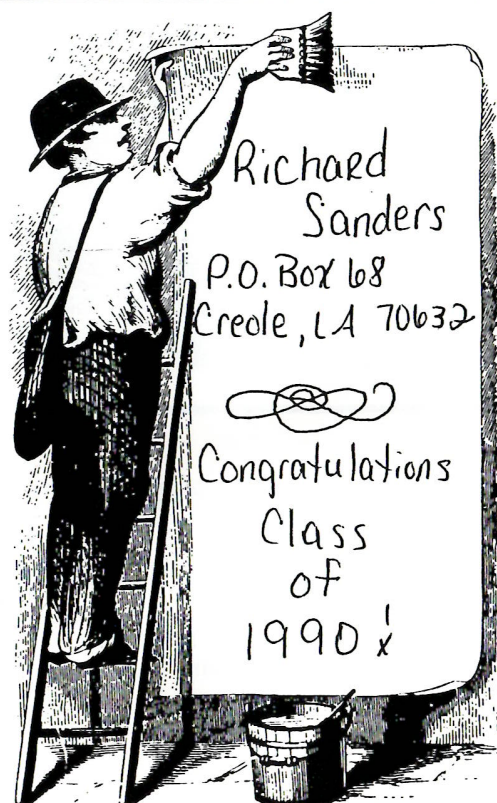 Richard
Sanders
P.O. Box 68
Creole, LA 70632
Congratulations
Class
of
1990!